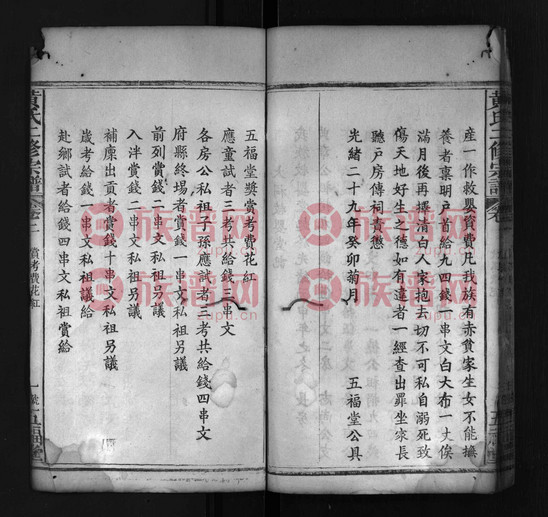 產一作救嬰資費凡我族有赤貧家生女不能撫
養者稟明戶首給九四錢一串文白大布一丈俟
滿月後再撰清白人家抱去切不可私自溺死致
傷天地好生之德如有違者一經查出罪坐家長
聽戶房傳祠責懲
光緒二十九年癸卯菊月
五福堂公具
黃氏二修宗譜
五福堂獎賞考費花紅
應童試者三考共給錢 串文
各房公私祖子孫應試者三考共給錢四串文
府縣終場者賞錢一串文私祖另議
前列賞錢二串文私祖另議
入泮賞錢二串文私祖另議
補廩出貢者賞錢十串文私祖另議
歲考給錢一串文私祖議給
赴鄉試者給錢四串文私祖賞給
黃氏二修宗譜
賞考費花紅
五福堂
族谱网
zupu.cn
族谱网
zupu.cn
族谱网
zupu.cn
族谱网
zupu.cn